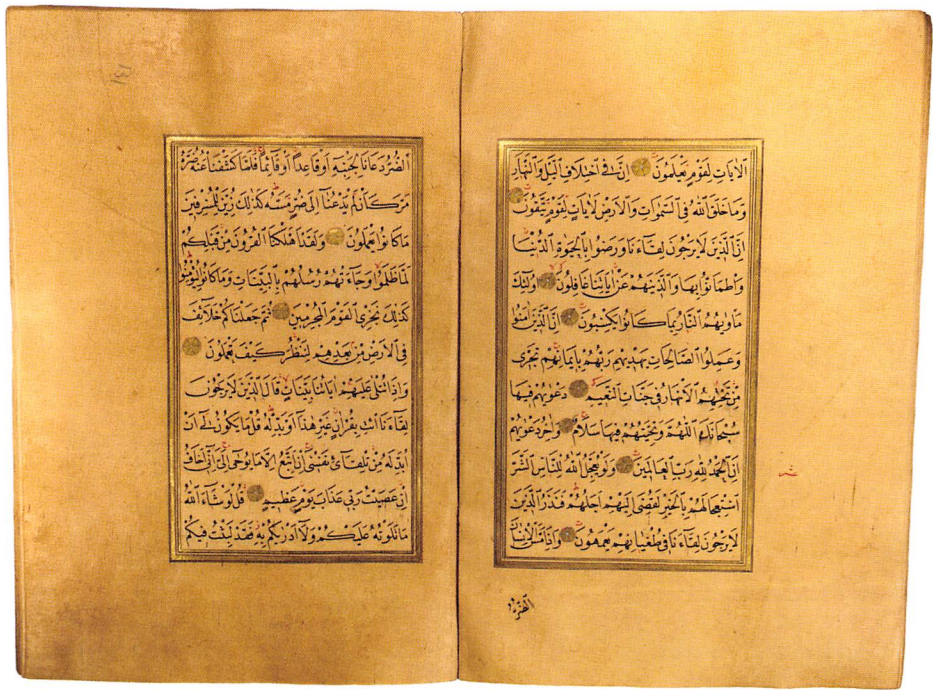 الْاٰيَاتِ لِقَوْمٍ يَعْلَمُونَ اِنَّ فِي اخْتِلَافِ الَّيْلِ وَالنَّهَارِ
وَمَا خَلَقَ اللّٰهُ فِي السَّمٰوَاتِ وَالْاَرْضِ لَاٰيَاتٍ لِقَوْمٍ يَتَّقُونَ
اِنَّ الَّذِينَ لَا يَرْجُونَ لِقَاءَنَا وَرَضُوا بِالْحَيٰوةِ الدُّنْيَا
وَاطْمَاَنُّوا بِهَا وَالَّذِينَ هُمْ عَنْ اٰيَاتِنَا غَافِلُونَ اُولٰئِكَ
مَأْوٰيهُمُ النَّارُ بِمَا كَانُوا يَكْسِبُونَ اِنَّ الَّذِينَ اٰمَنُوا
وَعَمِلُوا الصَّالِحَاتِ يَهْدِيهِمْ رَبُّهُمْ بِاِيمَانِهِمْ تَجْرِي
مِنْ تَحْتِهِمُ الْاَنْهَارُ فِي جَنَّاتِ النَّعِيمِ دَعْوٰيهُمْ فِيهَا
سُبْحَانَكَ اللّٰهُمَّ وَتَحِيَّتُهُمْ فِيهَا سَلَامٌ وَاٰخِرُ دَعْوٰيهُمْ
اَنِ الْحَمْدُ لِلّٰهِ رَبِّ الْعَالَمِينَ وَلَوْ يُعَجِّلُ اللّٰهُ لِلنَّاسِ الشَّرَّ
اسْتِعْجَالَهُمْ بِالْخَيْرِ لَقُضِيَ اِلَيْهِمْ اَجَلُهُمْ فَنَذَرُ الَّذِينَ
لَا يَرْجُونَ لِقَاءَنَا فِي طُغْيَانِهِمْ يَعْمَهُونَ وَاِذَا مَسَّ الْاِنْسَانَ
الضُّرُّ
الضُّرُّ دَعَانَا لِجَنْبِهِ اَوْ قَاعِدًا اَوْ قَائِمًا فَلَمَّا كَشَفْنَا عَنْهُ ضُرَّهُ
مَرَّ كَاَنْ لَمْ يَدْعُنَا اِلٰى ضُرٍّ مَسَّهُ كَذٰلِكَ زُيِّنَ لِلْمُسْرِفِينَ
مَا كَانُوا يَعْمَلُونَ وَلَقَدْ اَهْلَكْنَا الْقُرُونَ مِنْ قَبْلِكُمْ
لَمَّا ظَلَمُوا وَجَاءَتْهُمْ رُسُلُهُمْ بِالْبَيِّنَاتِ وَمَا كَانُوا لِيُؤْمِنُوا
كَذٰلِكَ نَجْزِي الْقَوْمَ الْمُجْرِمِينَ ثُمَّ جَعَلْنَاكُمْ خَلَائِفَ
فِي الْاَرْضِ مِنْ بَعْدِهِمْ لِنَنْظُرَ كَيْفَ تَعْمَلُونَ
وَاِذَا تُتْلٰى عَلَيْهِمْ اٰيَاتُنَا بَيِّنَاتٍ قَالَ الَّذِينَ لَا يَرْجُونَ
لِقَاءَنَا ائْتِ بِقُرْاٰنٍ غَيْرِ هٰذَا اَوْ بَدِّلْهُ قُلْ مَا يَكُونُ لِي اَنْ
اُبَدِّلَهُ مِنْ تِلْقَائِ نَفْسِي اِنْ اَتَّبِعُ اِلَّا مَا يُوحٰى اِلَيَّ اِنِّي اَخَافُ
اِنْ عَصَيْتُ رَبِّي عَذَابَ يَوْمٍ عَظِيمٍ قُلْ لَوْ شَاءَ اللّٰهُ
مَا تَلَوْتُهُ عَلَيْكُمْ وَلَا اَدْرٰيكُمْ بِهِ فَقَدْ لَبِثْتُ فِيكُمْ